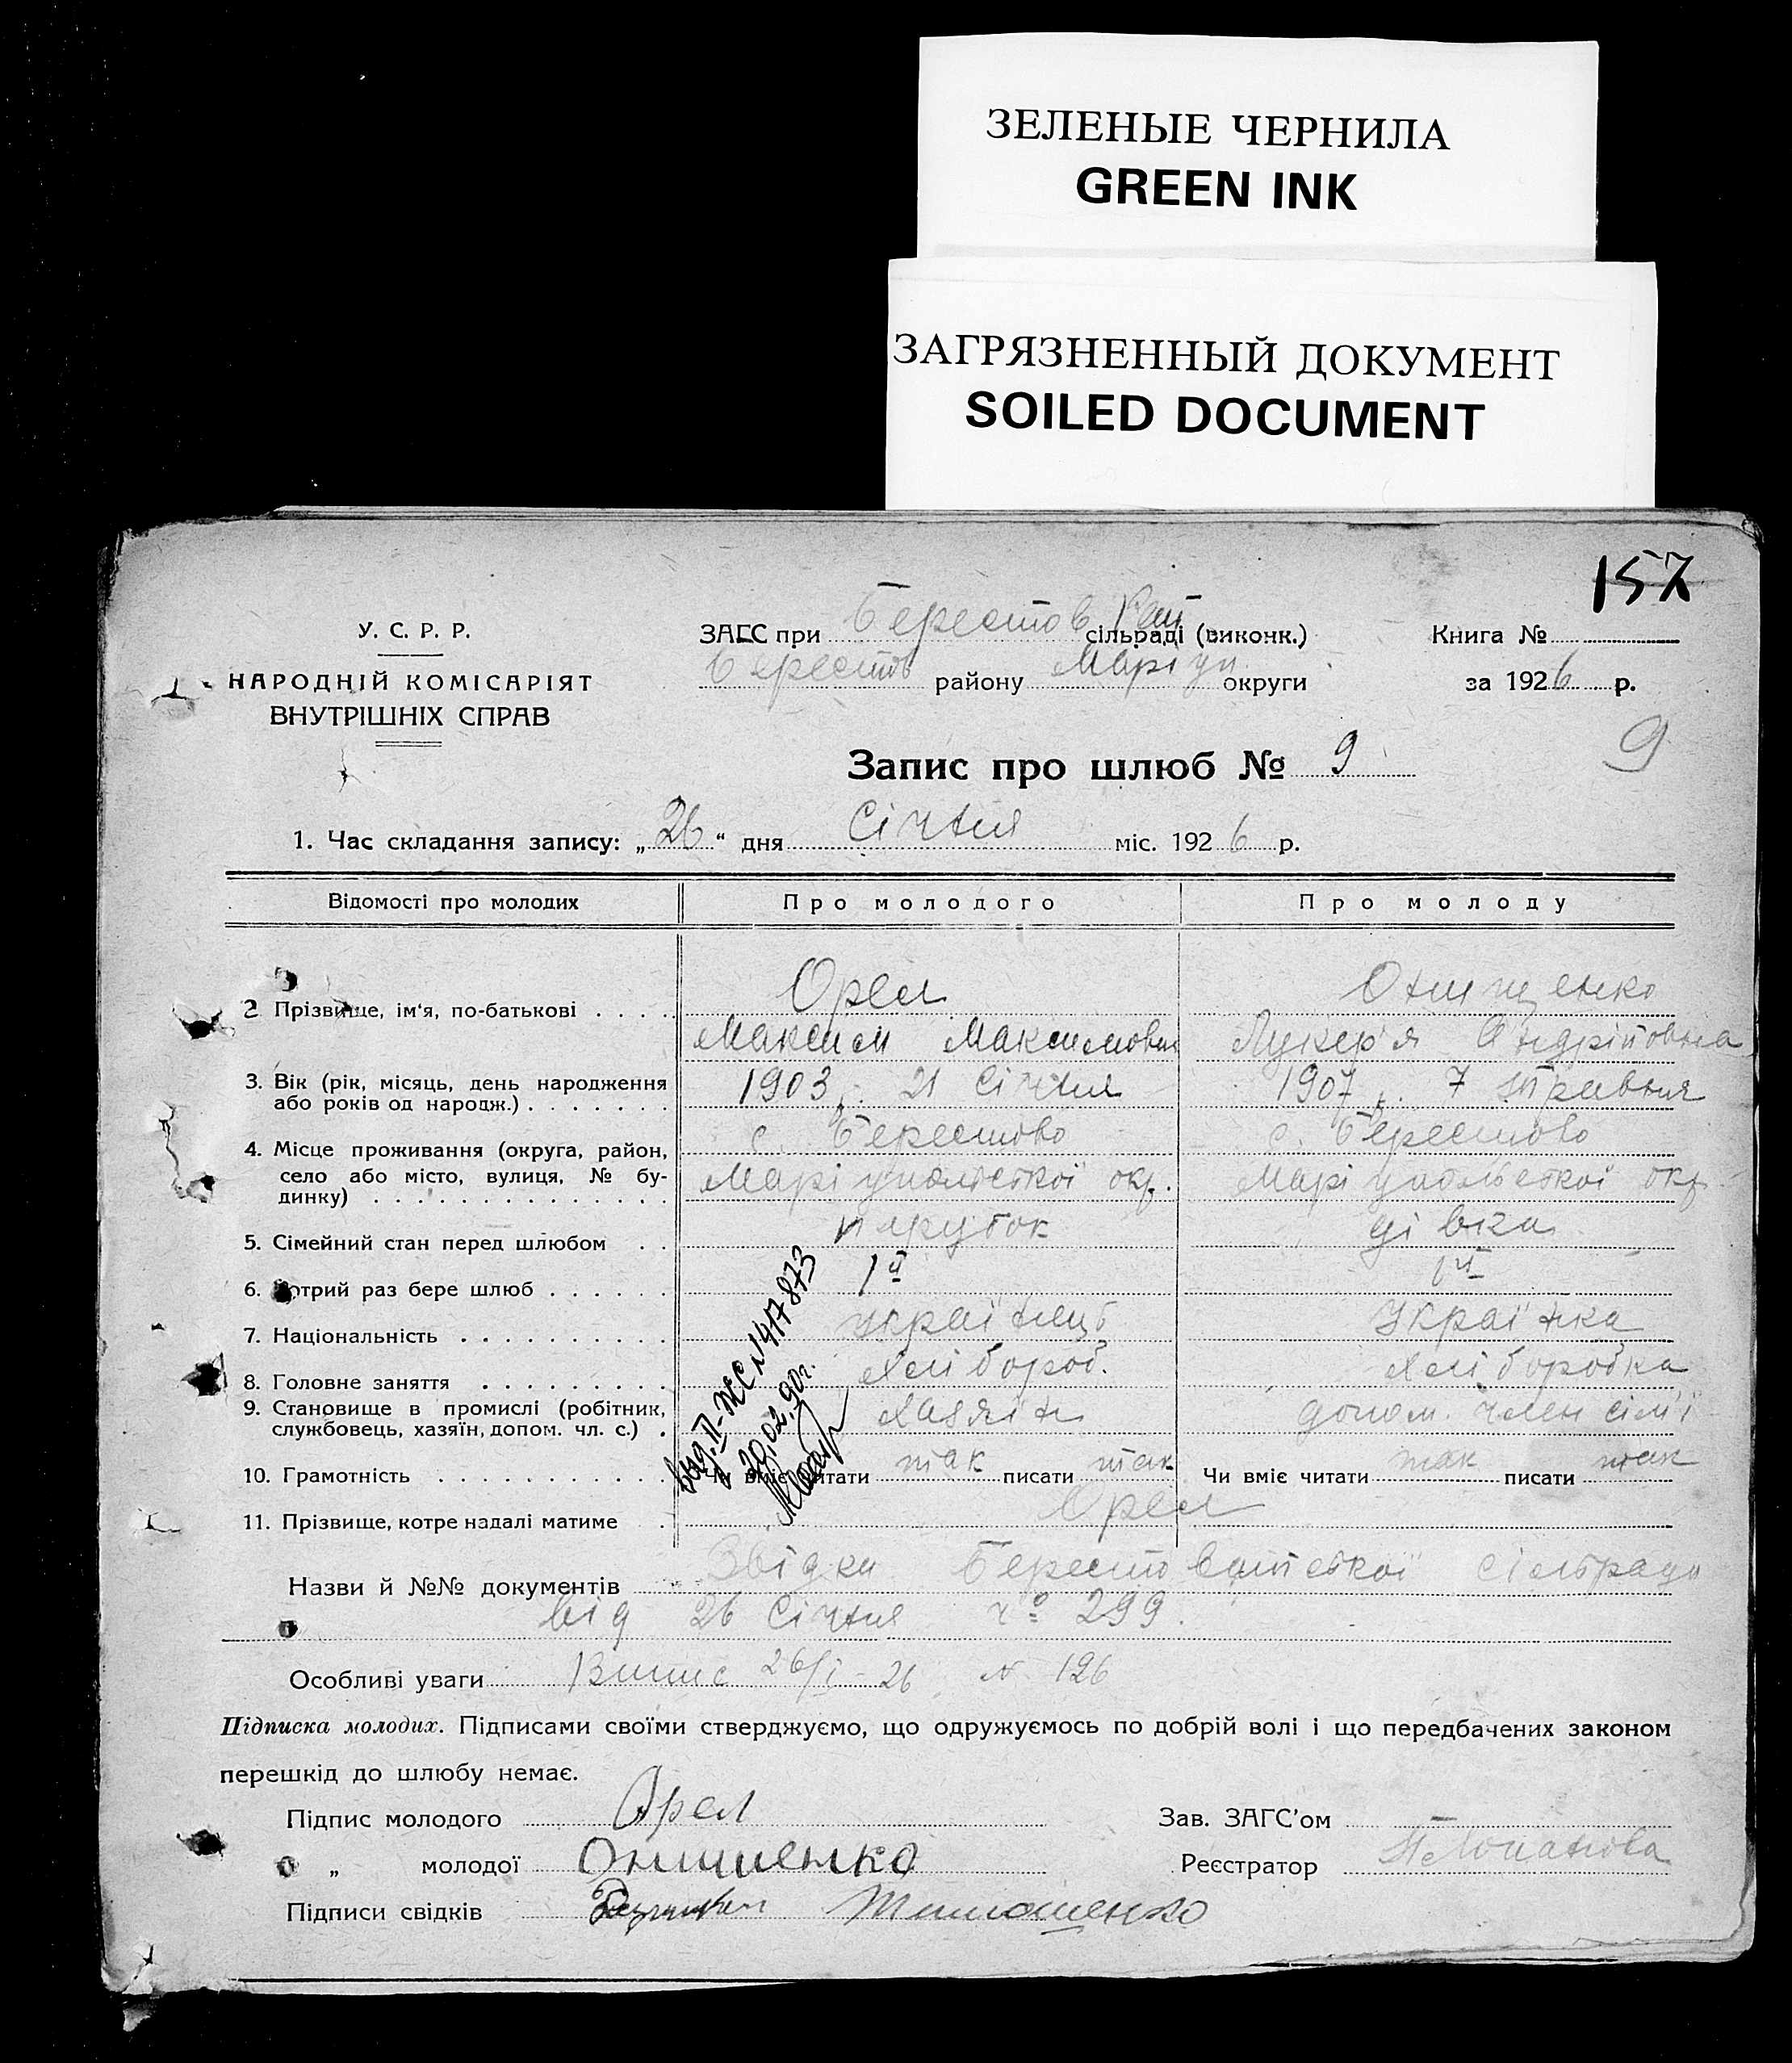 ЗЕЛЕНЫЕ ЧЕРНИЛА
GREEN INK
ЗАГРЯЗНЕННЫЙ ДОКУМЕНТ
SOILED DOCUMENT
157
У. С. Р. Р.
НАРОДНІЙ КОМІСАРІЯТ
ВНУТРІШНІХ СПРАВ
ЗАГС при Берестов. сільраді (виконк.)
Берестов району Маріуп. округи
Книга №
за 1926 р.
Запис про шлюб № 9
9
1. Час складання запису: „26“ дня Січня міс. 1926 р.
Відомості про молодих Про молодого Про молоду
2 Прізвище, ім'я, по-батькові Орел Онищенко
Максим Максимович Лукер'я Андріївна
3. Вік (рік, місяць, день народження або років од народж.) 1903 р. 21 Січня 1907 р. 7 травня
4. Місце проживання (округа, район, село або місто, вулиця, № будинку) с. Берестово с. Берестово
Маріупольської окр. Маріупольської окр.
5. Сімейний стан перед шлюбом парубок дівка
6. Котрий раз бере шлюб 1й 1й
7. Національність Українець Українка
8. Головне заняття Хлібороб. Хліборобка
9. Становище в промислі (робітник, службовець, хазяїн, допом. чл. с.) Хазяїн допом. член сім'ї
10. Грамотність Чи вміє читати так писати так Чи вміє читати так писати так
11. Прізвище, котре надалі матиме Орел
выд. II-ЖС №417873
20.02.90г.
Назви й №№ документів Звідка Берестовської сільради
від 26 Січня № 299.
Особливі уваги Випис 26/I-26 № 126
Підписка молодих. Підписами своїми стверджуємо, що одружуємось по добрій волі і що передбачених законом
перешкід до шлюбу немає.
Підпис молодого Орел Зав. ЗАГС'ом
„ молодої Онищенко Реєстратор
Підписи свідків Тимошенко